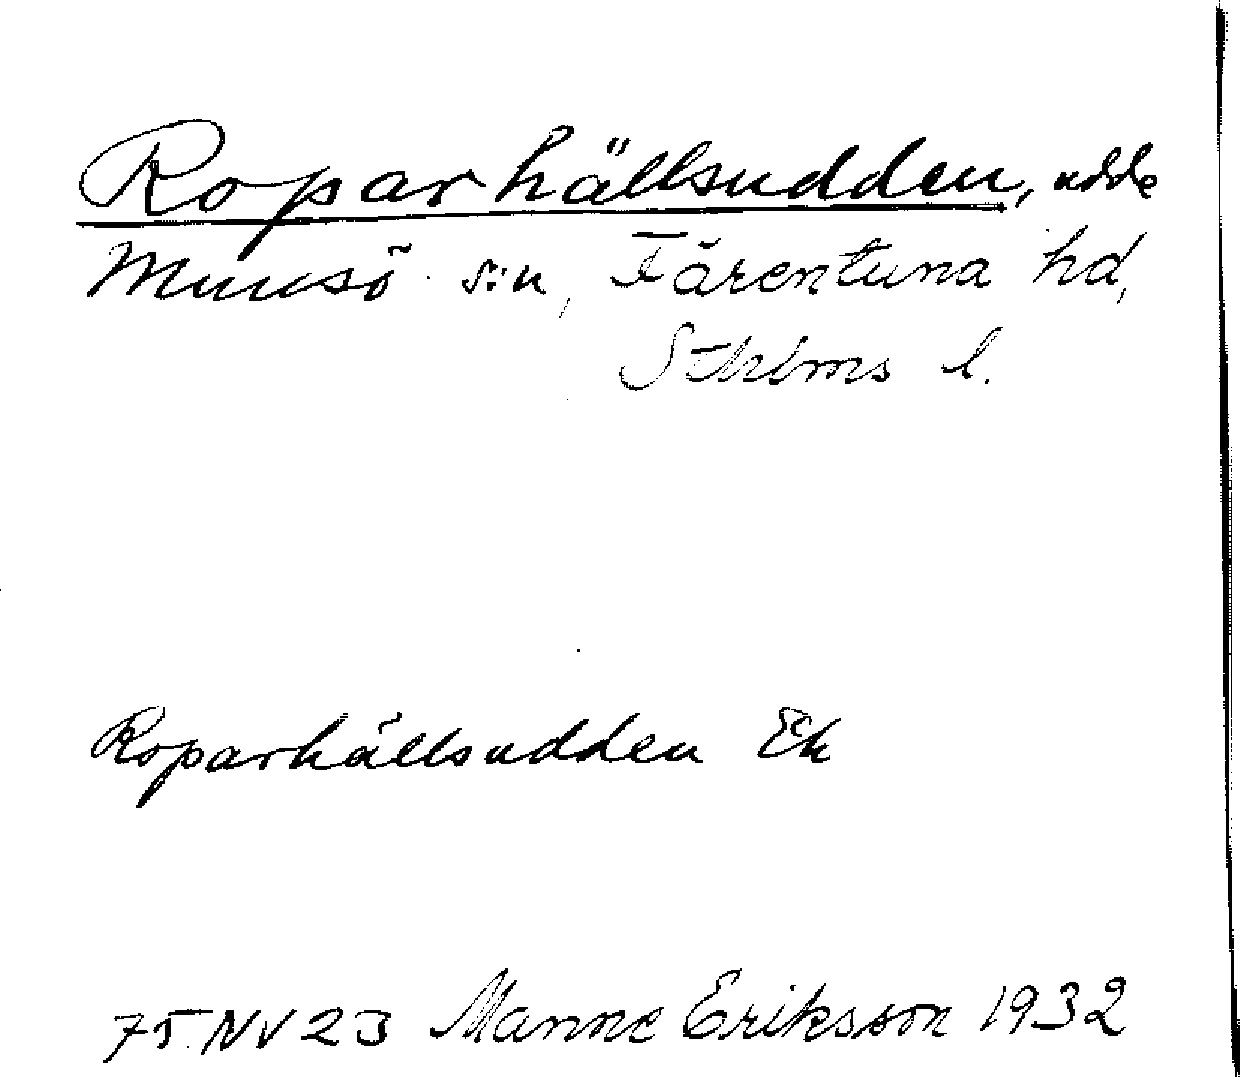 Roparhällsudden, udde
Munsö s:n, Färentuna hd,
Sthlms l.
Roparhällsudden Ek
75 NV 23 Manne Eriksson 1932